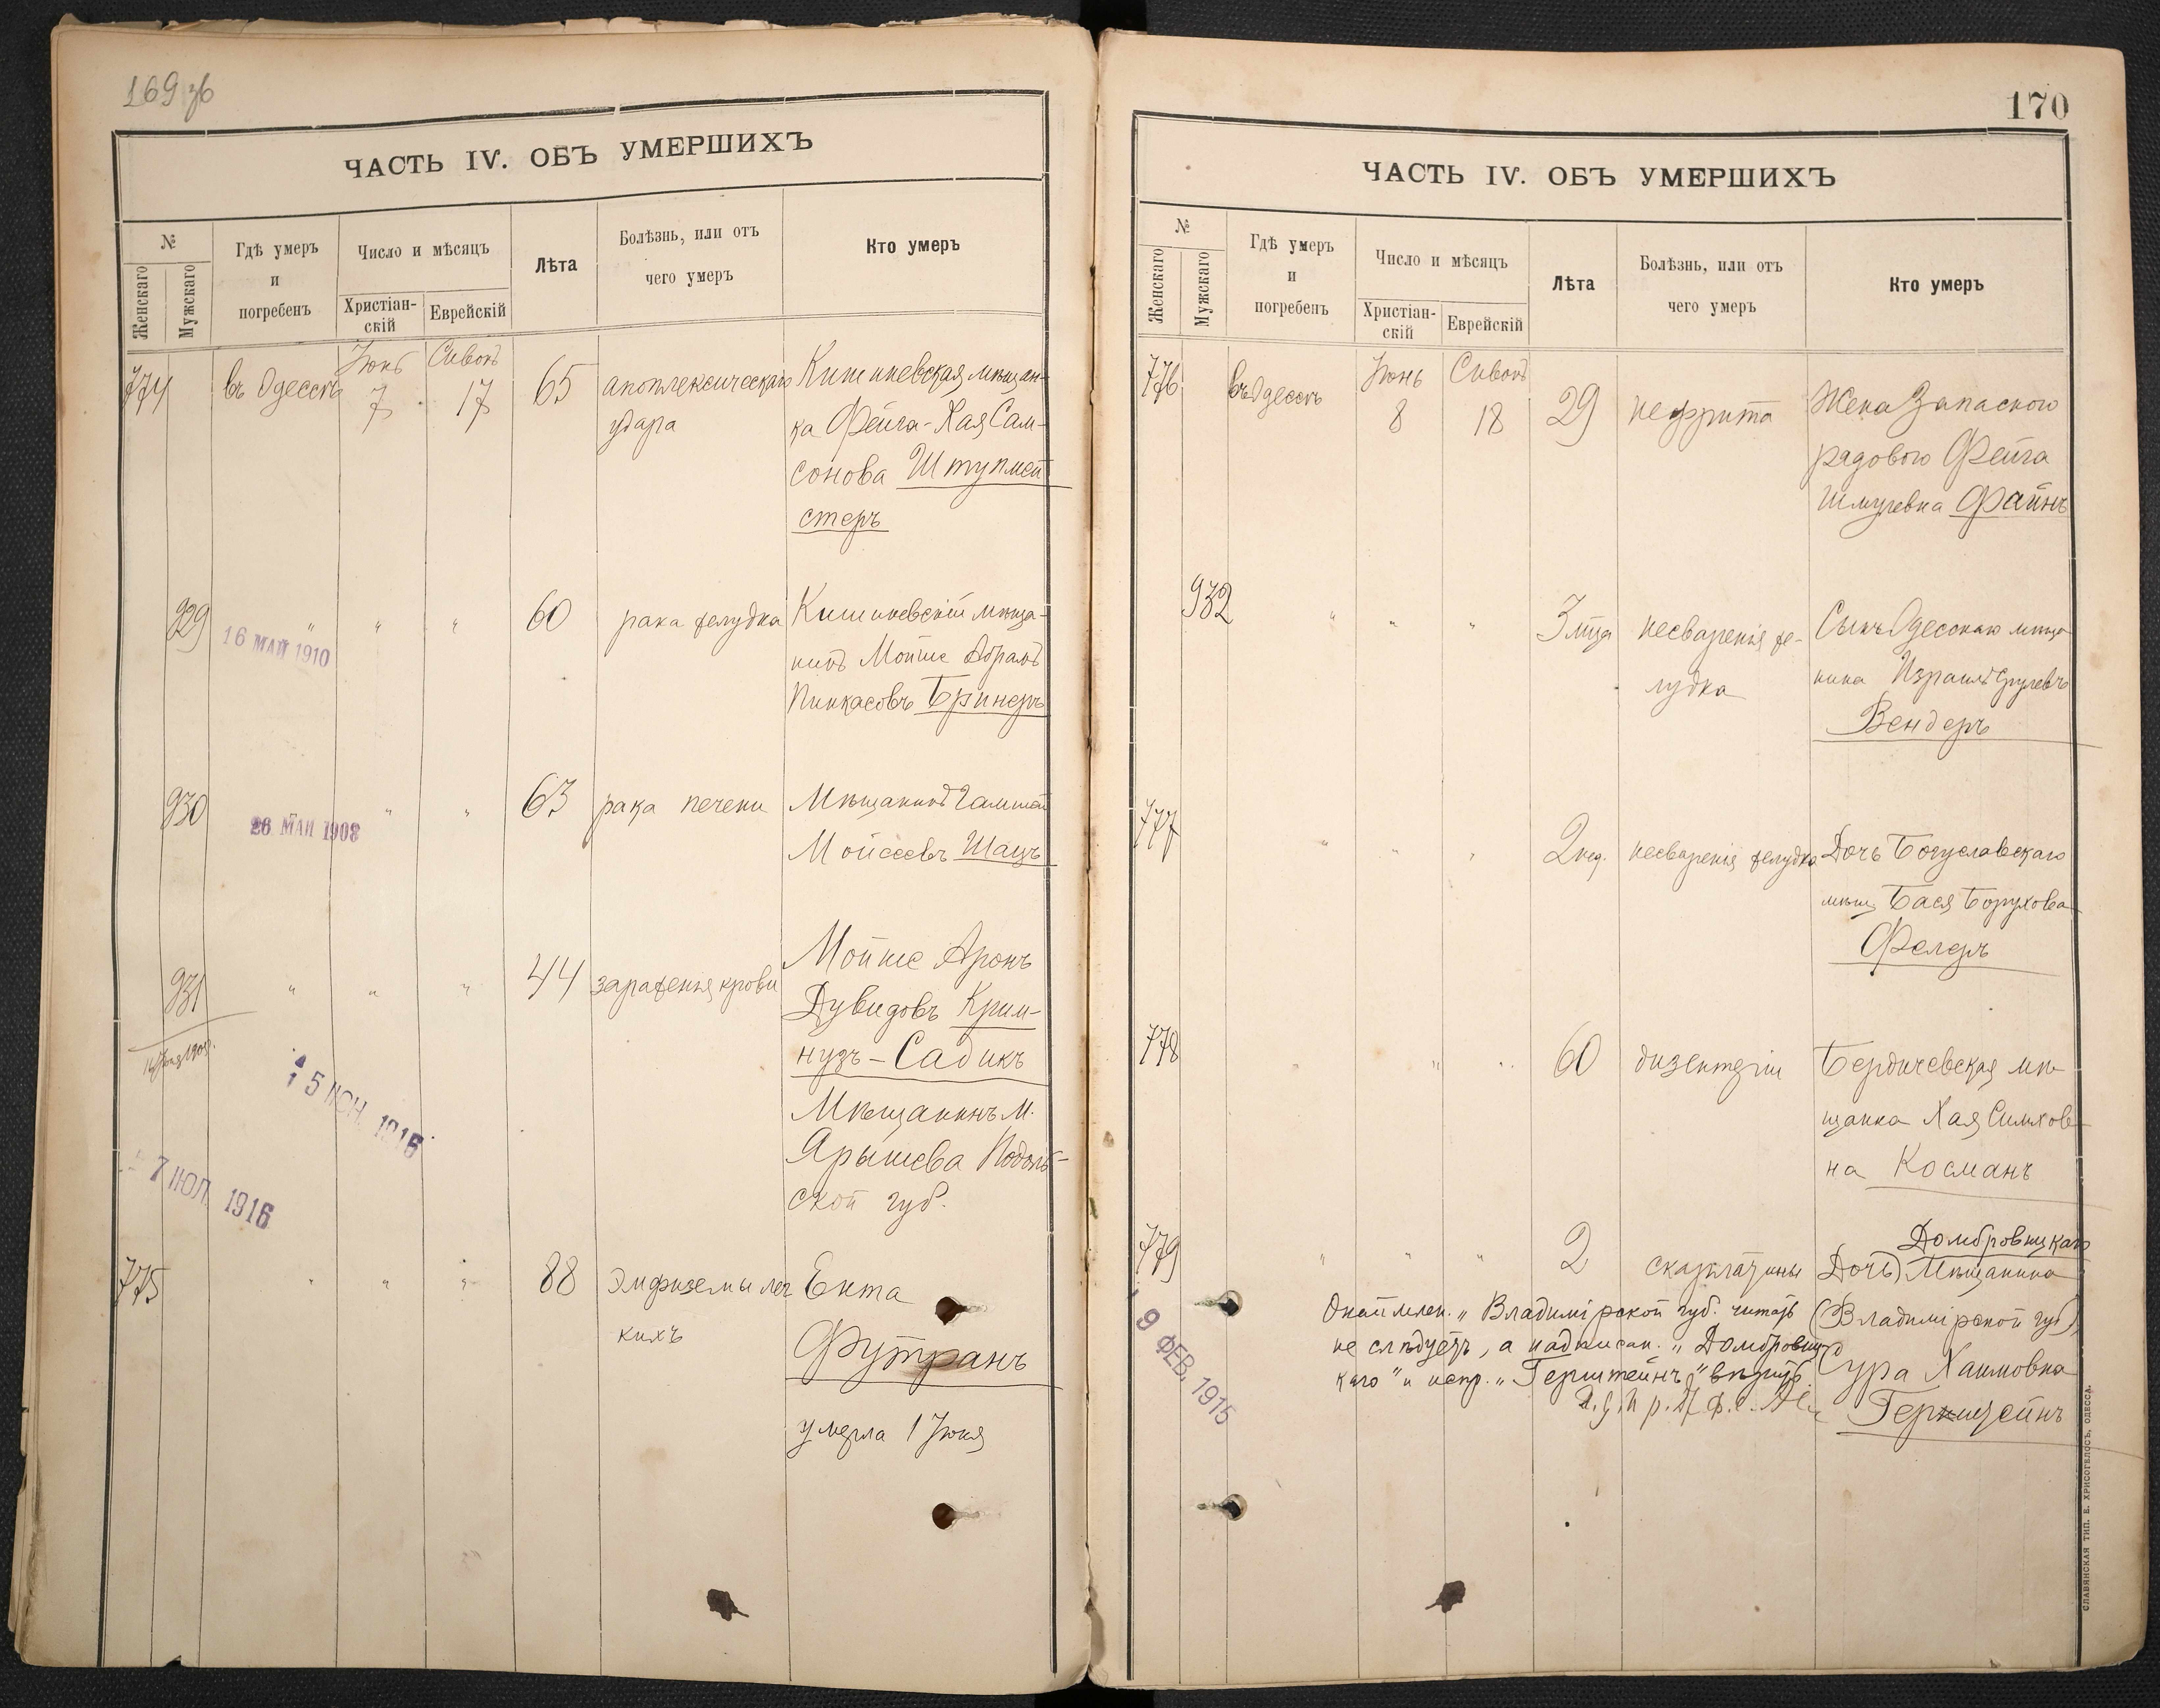 169 зв
ЧАСТЬ IV. ОБЪ УМЕРШИХЪ
№
Женскаго
Мужскаго
Гдѣ умеръ
и
погребенъ
Число и мѣсяцъ
Христіан-
скій
Еврейскій
Лѣта
Болѣзнь, или отъ
чего умеръ
Кто умеръ
774
въ Одессѣ
Іюнь
7
Сивонъ
17
65
апоплексическаго
удара
Кишиневская мѣщан-
ка Фейга-Хая Сам-
сонова Штупмей
стеръ
929
16 МАЙ 1910
"
"
"
60
рака желудка
Кишиневскій мѣща-
нинъ Мойше Абрамъ
Пинкасовъ Бринеръ
930
26 МАЙ 1908
"
"
"
63
рака печени
Мѣщанинъ
Мойсеевъ Шацъ
931
"
"
"
44
зараженія крови
Мойше Аронъ
Дувидовъ Крим-
нузъ-Садикъ
Мѣщанинъ м.
Ярышева Подоль-
ской губ.
15 ІЮН. 1916
7 ІЮЛ 1916
775
"
"
"
88
Эмфиземы лег
кихъ
Ента
Футранъ
умерла 1 Іюня
170
ЧАСТЬ IV. ОБЪ УМЕРШИХЪ
№
Женскаго
Мужскаго
Гдѣ умеръ
и
погребенъ
Число и мѣсяцъ
Христіан-
скій
Еврейскій
Лѣта
Болѣзнь, или отъ
чего умеръ
Кто умеръ
776
въ Одессѣ
Іюнь
8
Сивонъ
18
29
нефрита
Жена Запаснаго
рядового Фейга
Шмулевна Файнъ
932
"
"
"
3 мца
несваренія же-
лудка
Сынъ Одесскаго мѣща
нина Израиль Срулевъ
Вендеръ
777
"
"
"
2 нед.
несваренія желудка
Дочь Богуславскаго
мѣщ Бася Борухова
Фелеръ
778
"
"
"
60
дизентеріи
Бердичевская мѣ-
щанка Хая Симхов-
на Косманъ
779
"
"
"
2
скарлатины
Домбровицкаго
Дочь Мѣщанина
(Владимірской губ)
Сура Хаимовна
Герштейнъ
Окаймлен. „Владимірской губ. читать
не слѣдуетъ, а надписан. „Домбровиц
каго" и испр. „Герштейнъ" вѣрить.
9 ФЕВ. 1915
СЛАВЯНСКАЯ ТИП. Е. ХРИСОГЕЛОСЪ, ОДЕССА.